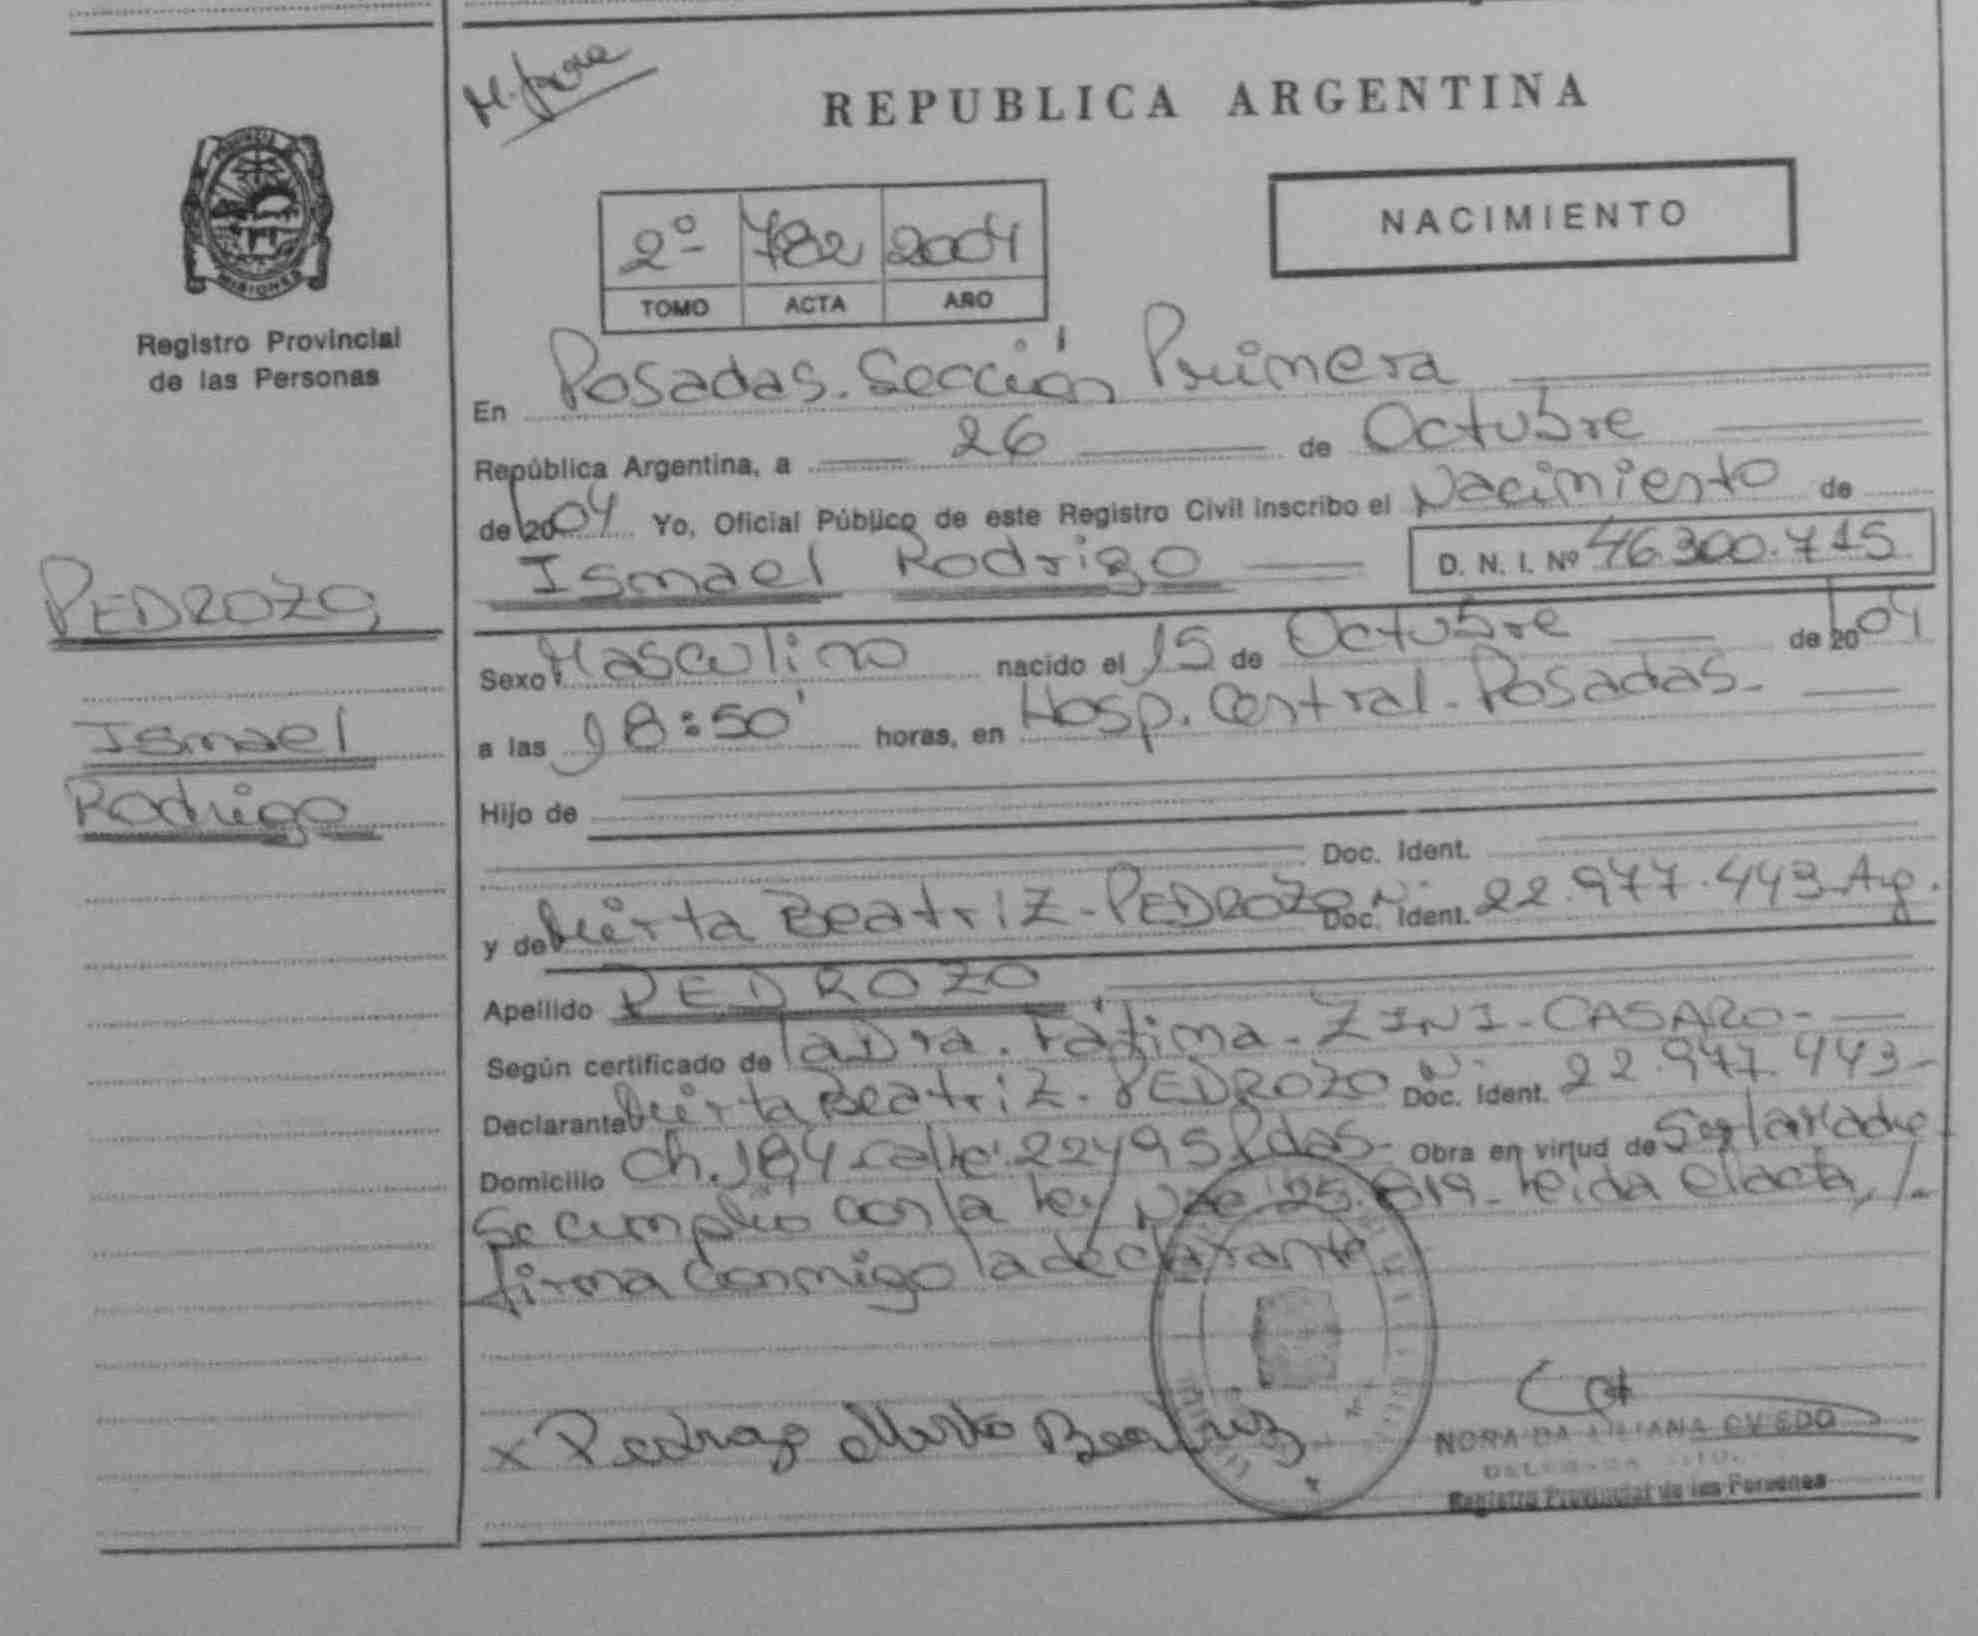 REPUBLICA ARGENTINA
NACIMIENTO
2º 782 2004
TOMO ACTA AÑO
PROVINCIA
MISIONES
Registro Provincial
de las Personas
PEDROZO
Ismael
Rodrigo
En Posadas. Sección Primera
República Argentina, a 26 de Octubre
de 2004 Yo, Oficial Público de este Registro Civil inscribo el Nacimiento de
Ismael Rodrigo D. N. I. Nº 46.300.715
Sexo Masculino nacido el 15 de Octubre de 2004
a las 18:50' horas, en Hosp. Central. Posadas-
Hijo de
Doc. Ident.
y de Mirta Beatriz-PEDROZO Doc. Ident. Nº 22.977.443 Arg.
Apellido PEDROZO
Según certificado de la Dra. Fátima-ZINI-CASARO-
Declarante Mirta Beatriz-PEDROZO Doc. Ident. Nº 22.977.443-
Domicilio Ch.184-calle Pdas- Obra en virtud de Ser la Madre
Se cumplio con la ley Nro 25.819-leida el acta,/-
firma conmigo la declarante
x Pedrozo Mirta Beatriz
LILIANA OVIEDO
Registro Provincial de las Personas